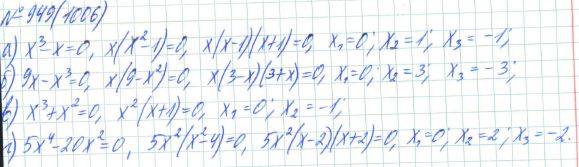 № 949(1006)
а) x³-x=0, x(x²-1)=0, x(x-1)(x+1)=0, x₁=0; x₂=1; x₃=-1;
б) 9x-x³=0, x(9-x²)=0, x(3-x)(3+x)=0, x₁=0; x₂=3; x₃=-3;
в) x³+x²=0, x²(x+1)=0, x₁=0; x₂=-1;
г) 5x⁴-20x²=0, 5x²(x²-4)=0, 5x²(x-2)(x+2)=0, x₁=0; x₂=2; x₃=-2.